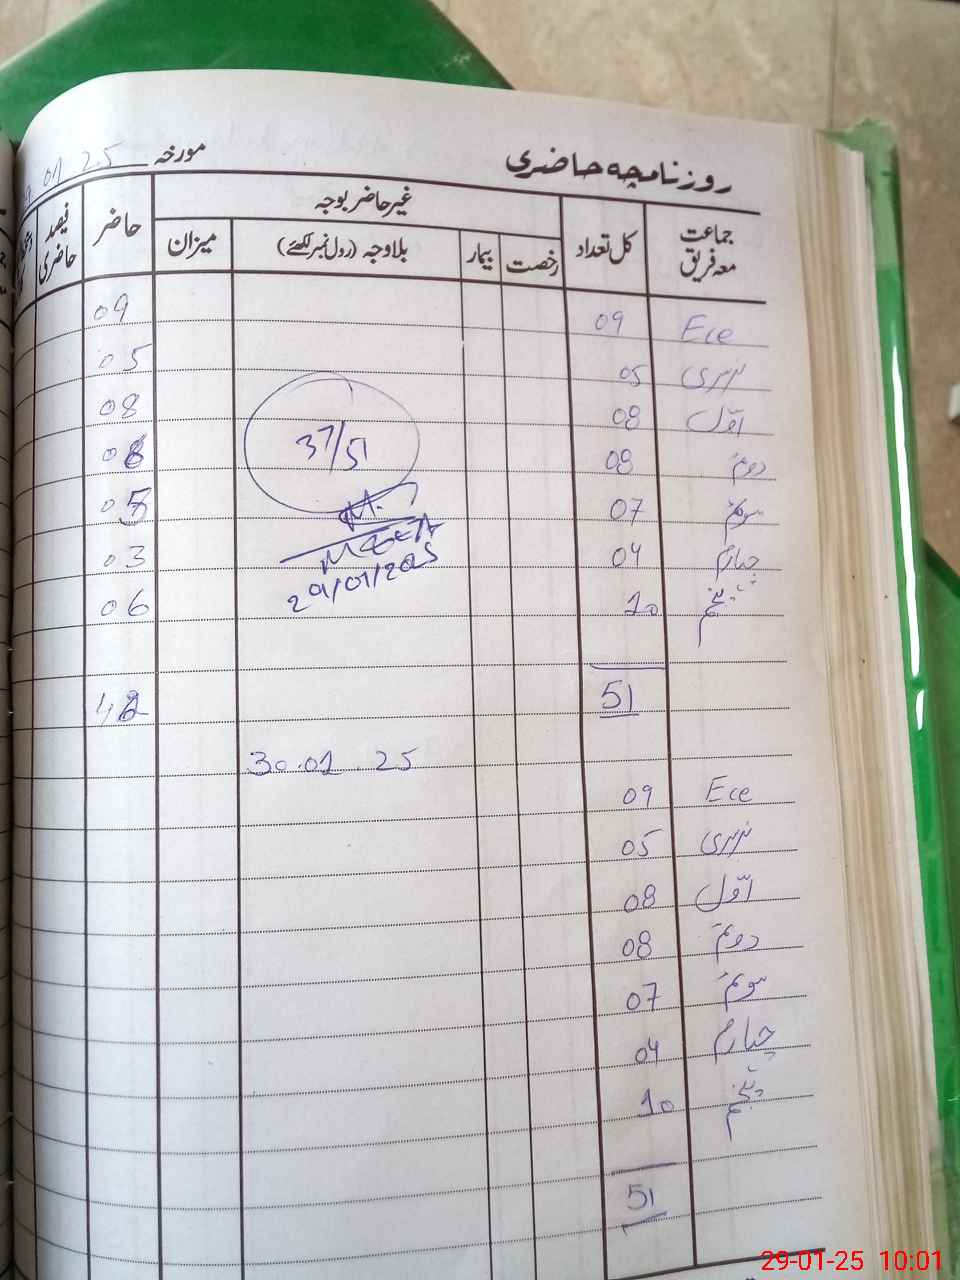 روزنامچہ حاضری مورخہ 01 25
جماعت معہ فریق کل تعداد غیر حاضر بوجہ حاضر فیصد حاضری
رخصت بیمار بلاوجہ (رول نمبر لکھئے) میزان
Ece 09 09
نرسری 05 05
اوّل 08 08
دوم 08
37/51
سوم 07
چہارم 04 03
29/01/2025
پنجم 10 06
51
30.01.25
Ece 09
نرسری 05
اوّل 08
دوم 08
سوم 07
چہارم 04
پنجم 10
51
29-01-25 10:01